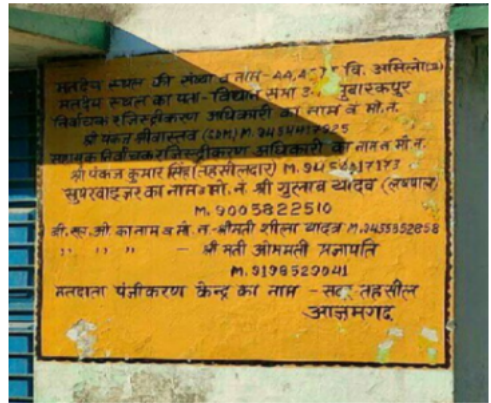 मतदेय स्थल की संख्या व नाम - 44, बि. अमिलो (अ)
मतदेय स्थल का पता - विधान सभा मुबारकपुर
निर्वाचक रजिस्ट्रीकरण अधिकारी का नाम व मो.न.
श्री श्रीवास्तव (SDM) M. 9454417925
सहायक निर्वाचक रजिस्ट्रीकरण अधिकारी का नाम व मो.न.
श्री पंकज कुमार सिंह (तहसीलदार) M.
सुपरवाइजर का नाम व मो.न. श्री गुलाब यादव (लेखपाल)
M. 9005822510
बी.एल.ओ. का नाम व मो. न - श्रीमती शीला यादव M.
,, ,, ,, - श्री मती ओममती प्रजापति
M. 9198529041
मतदाता पंजीकरण केन्द्र का नाम - सदर तहसील
आज़मगढ़